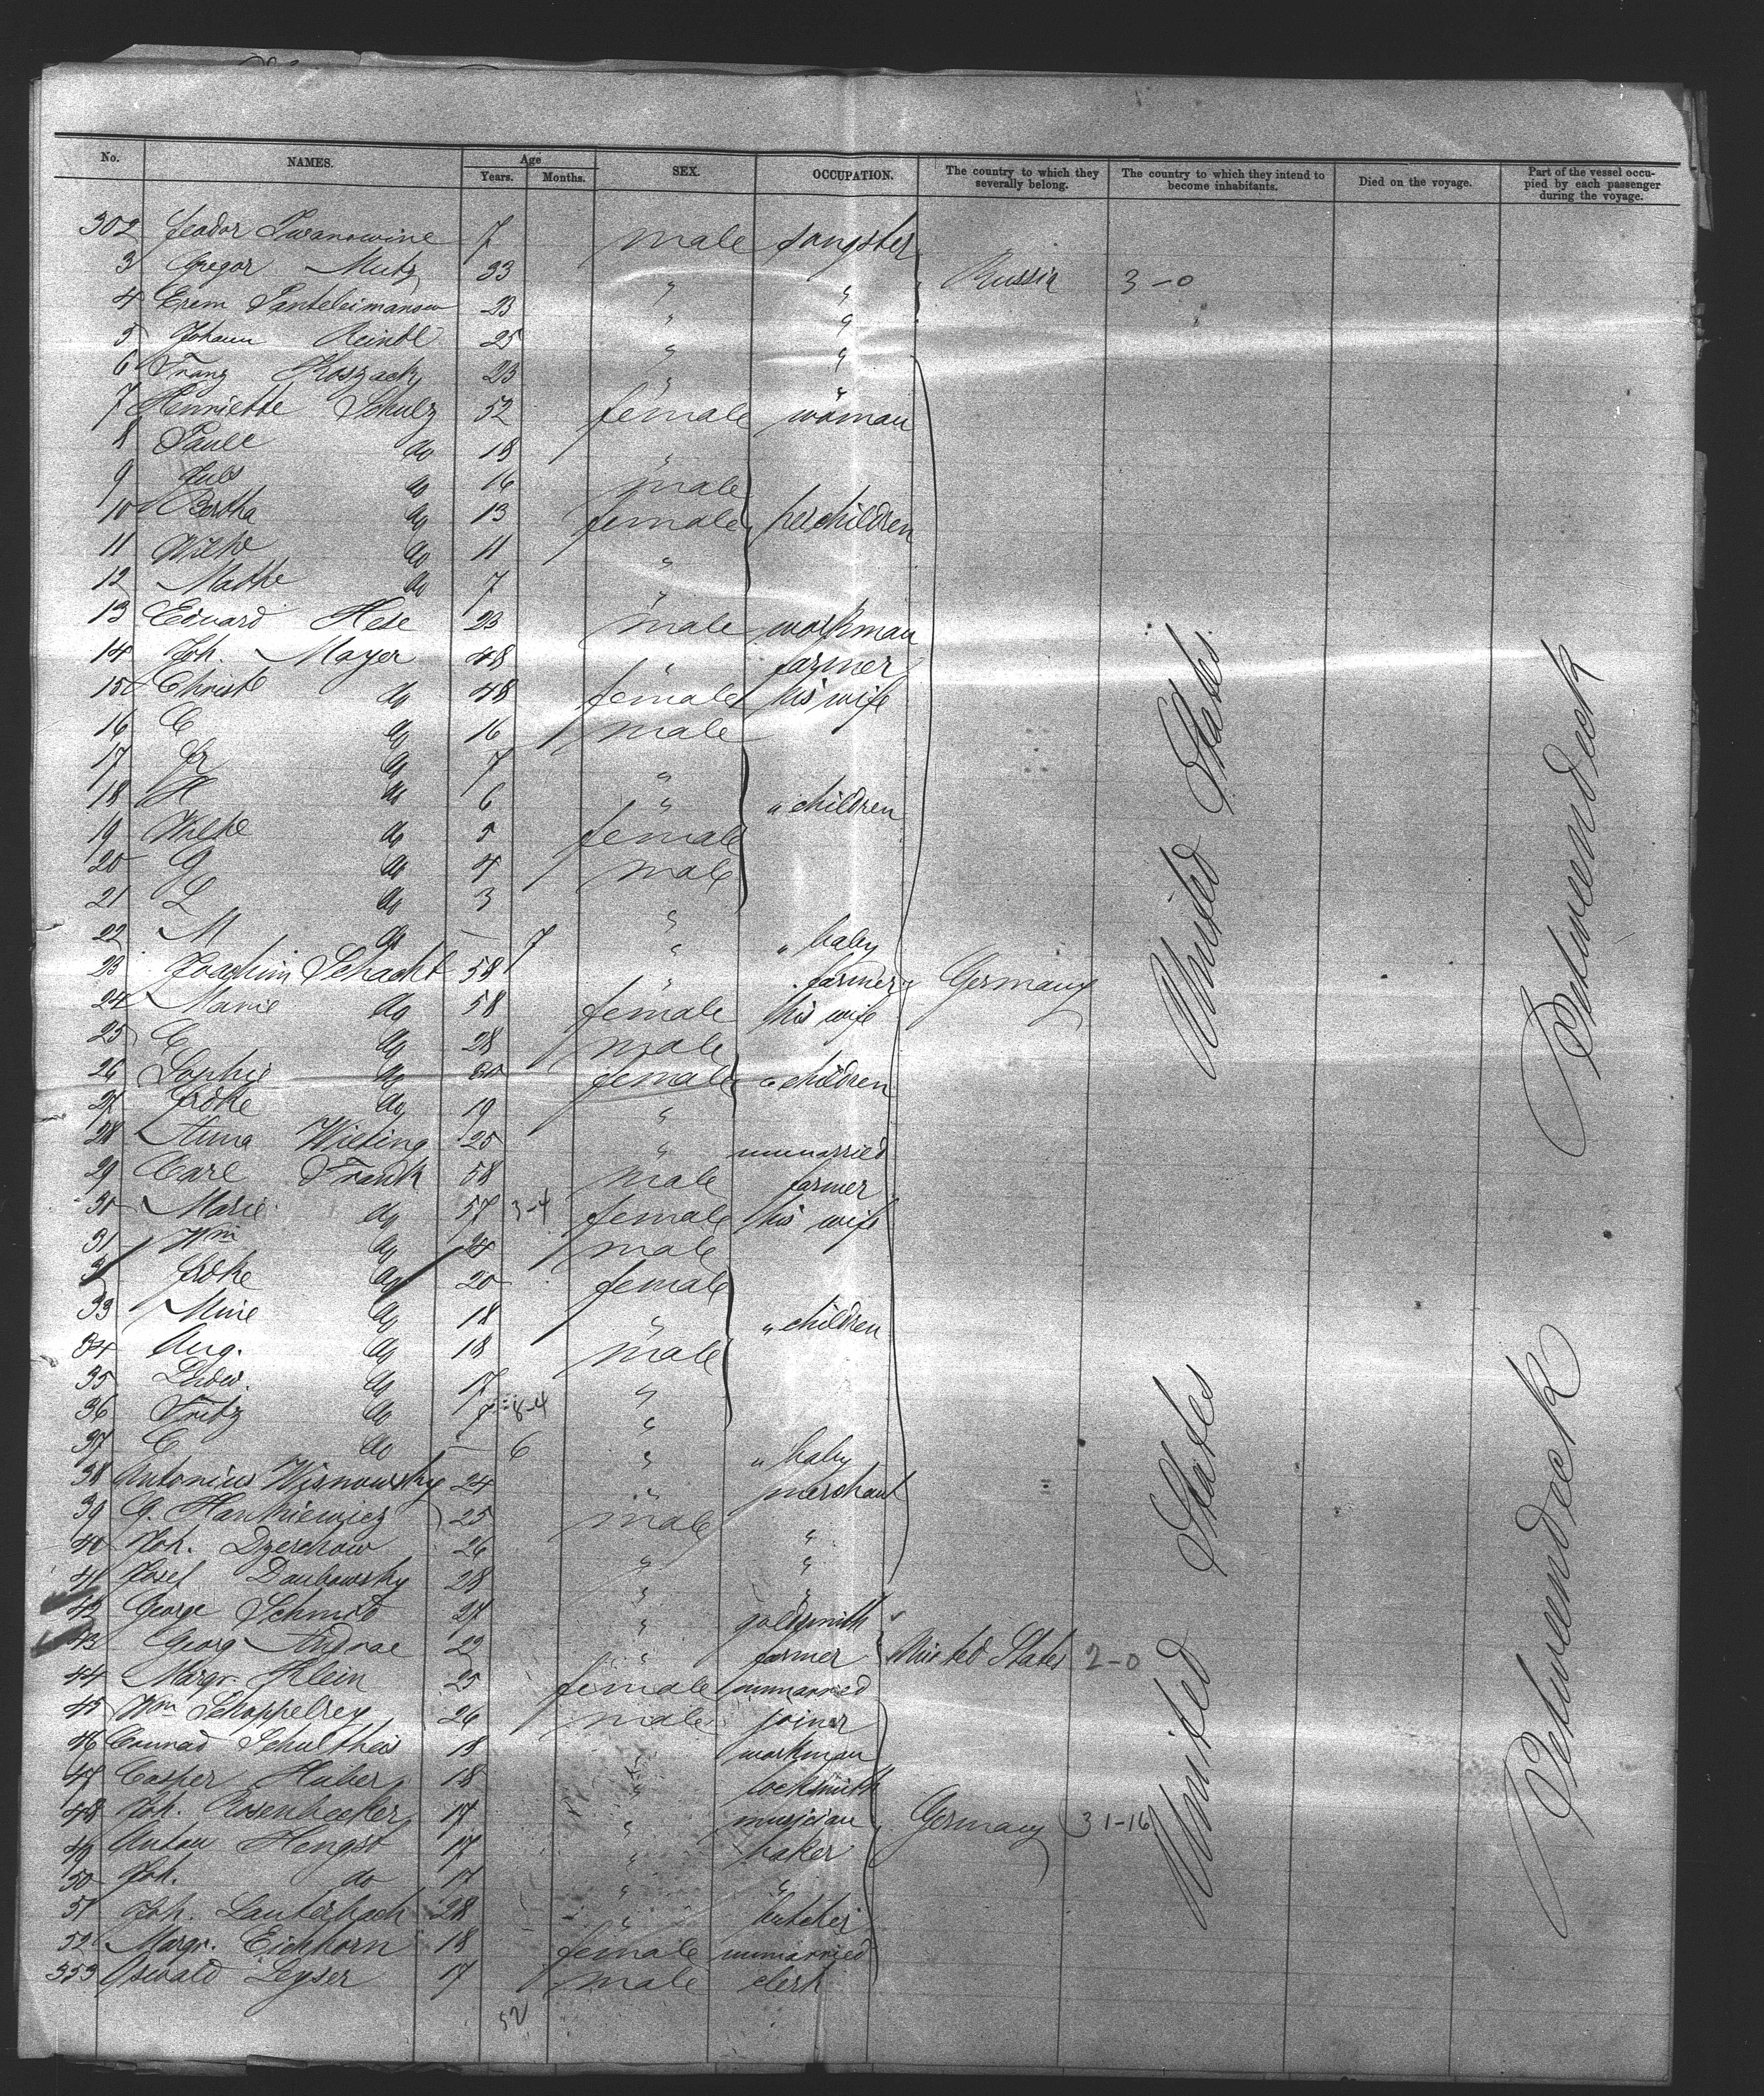 No. NAMES. Age Years. Months. SEX. OCCUPATION. The country to which they severally belong. The country to which they intend to become inhabitants. Died on the voyage. Part of the vessel occupied by each passenger during the voyage.
302 Feodor 7 male
3 Gregor Mutz 33 " " Russia 3-0
4 Erem Panteleimanow 23 " "
5 Johann Reindl 25 " "
6 Franz Koszack 23 " "
7 Henriette Schulz 52 female woman
8 Paule do 18 "
9 Juls do 16 male
10 Bertha do 13 female her children
11 Wilhe do 11 "
12 Mathe do 7 "
13 Eduard Hese 23 male workman
14 Joh. Mayer 48 " farmer
15 Christe do 48 female his wife
16 C do 16 male
17 Fr do 7 "
18 H do 6 " " children
19 Wilhe do 5 female
20 G do 4 male
21 L do 3 "
22 M do — 7 " " baby
23 Joachim Schacht 58 " farmer Germany United States Betweendeck
24 Marie do 58 female his wife
25 C do 28 male
26 Sophie do female " children
27 Fridke do 19 "
28 Anna Wieting 25 " unmarried
29 Carl Frank 58 male farmer
30 Marie do 57 3-4 female his wife
31 Wm do 24 male
3 Fridke do 20 female
33 Mine do 18 " " children
34 Aug. do 18 male
35 Ludw. do 17 "
36 Fritz do 7 8-4 "
37 C do — 6 " " baby
38 Antonius Wisnowsky 24 " merchant
39 G. Hankiewicz 25 male "
40 Joh. Dzerchow 26 " "
41 Josef Daubowsky 28 " "
42 George Schmid 27 " goldsmith
43 Georg Andrae 22 " farmer United States 2-0
44 Margr. Klein 25 female unmarried
45 Wm Schoppelrey 26 male joiner
46 Conrad Schultheis 18 " workman
47 Casper Huber 18 " locksmith
48 Joh. Rosenbecker 17 " musician Germany 31-16 United States Betweendeck
49 Anton Hengst 17 " baker
50 Joh. do 17 " "
51 Joh. Lauterbach 28 " butcher
52 Margr. Eichhorn 18 female unmarried
353 Oswald Leyser 17 male clerk
52